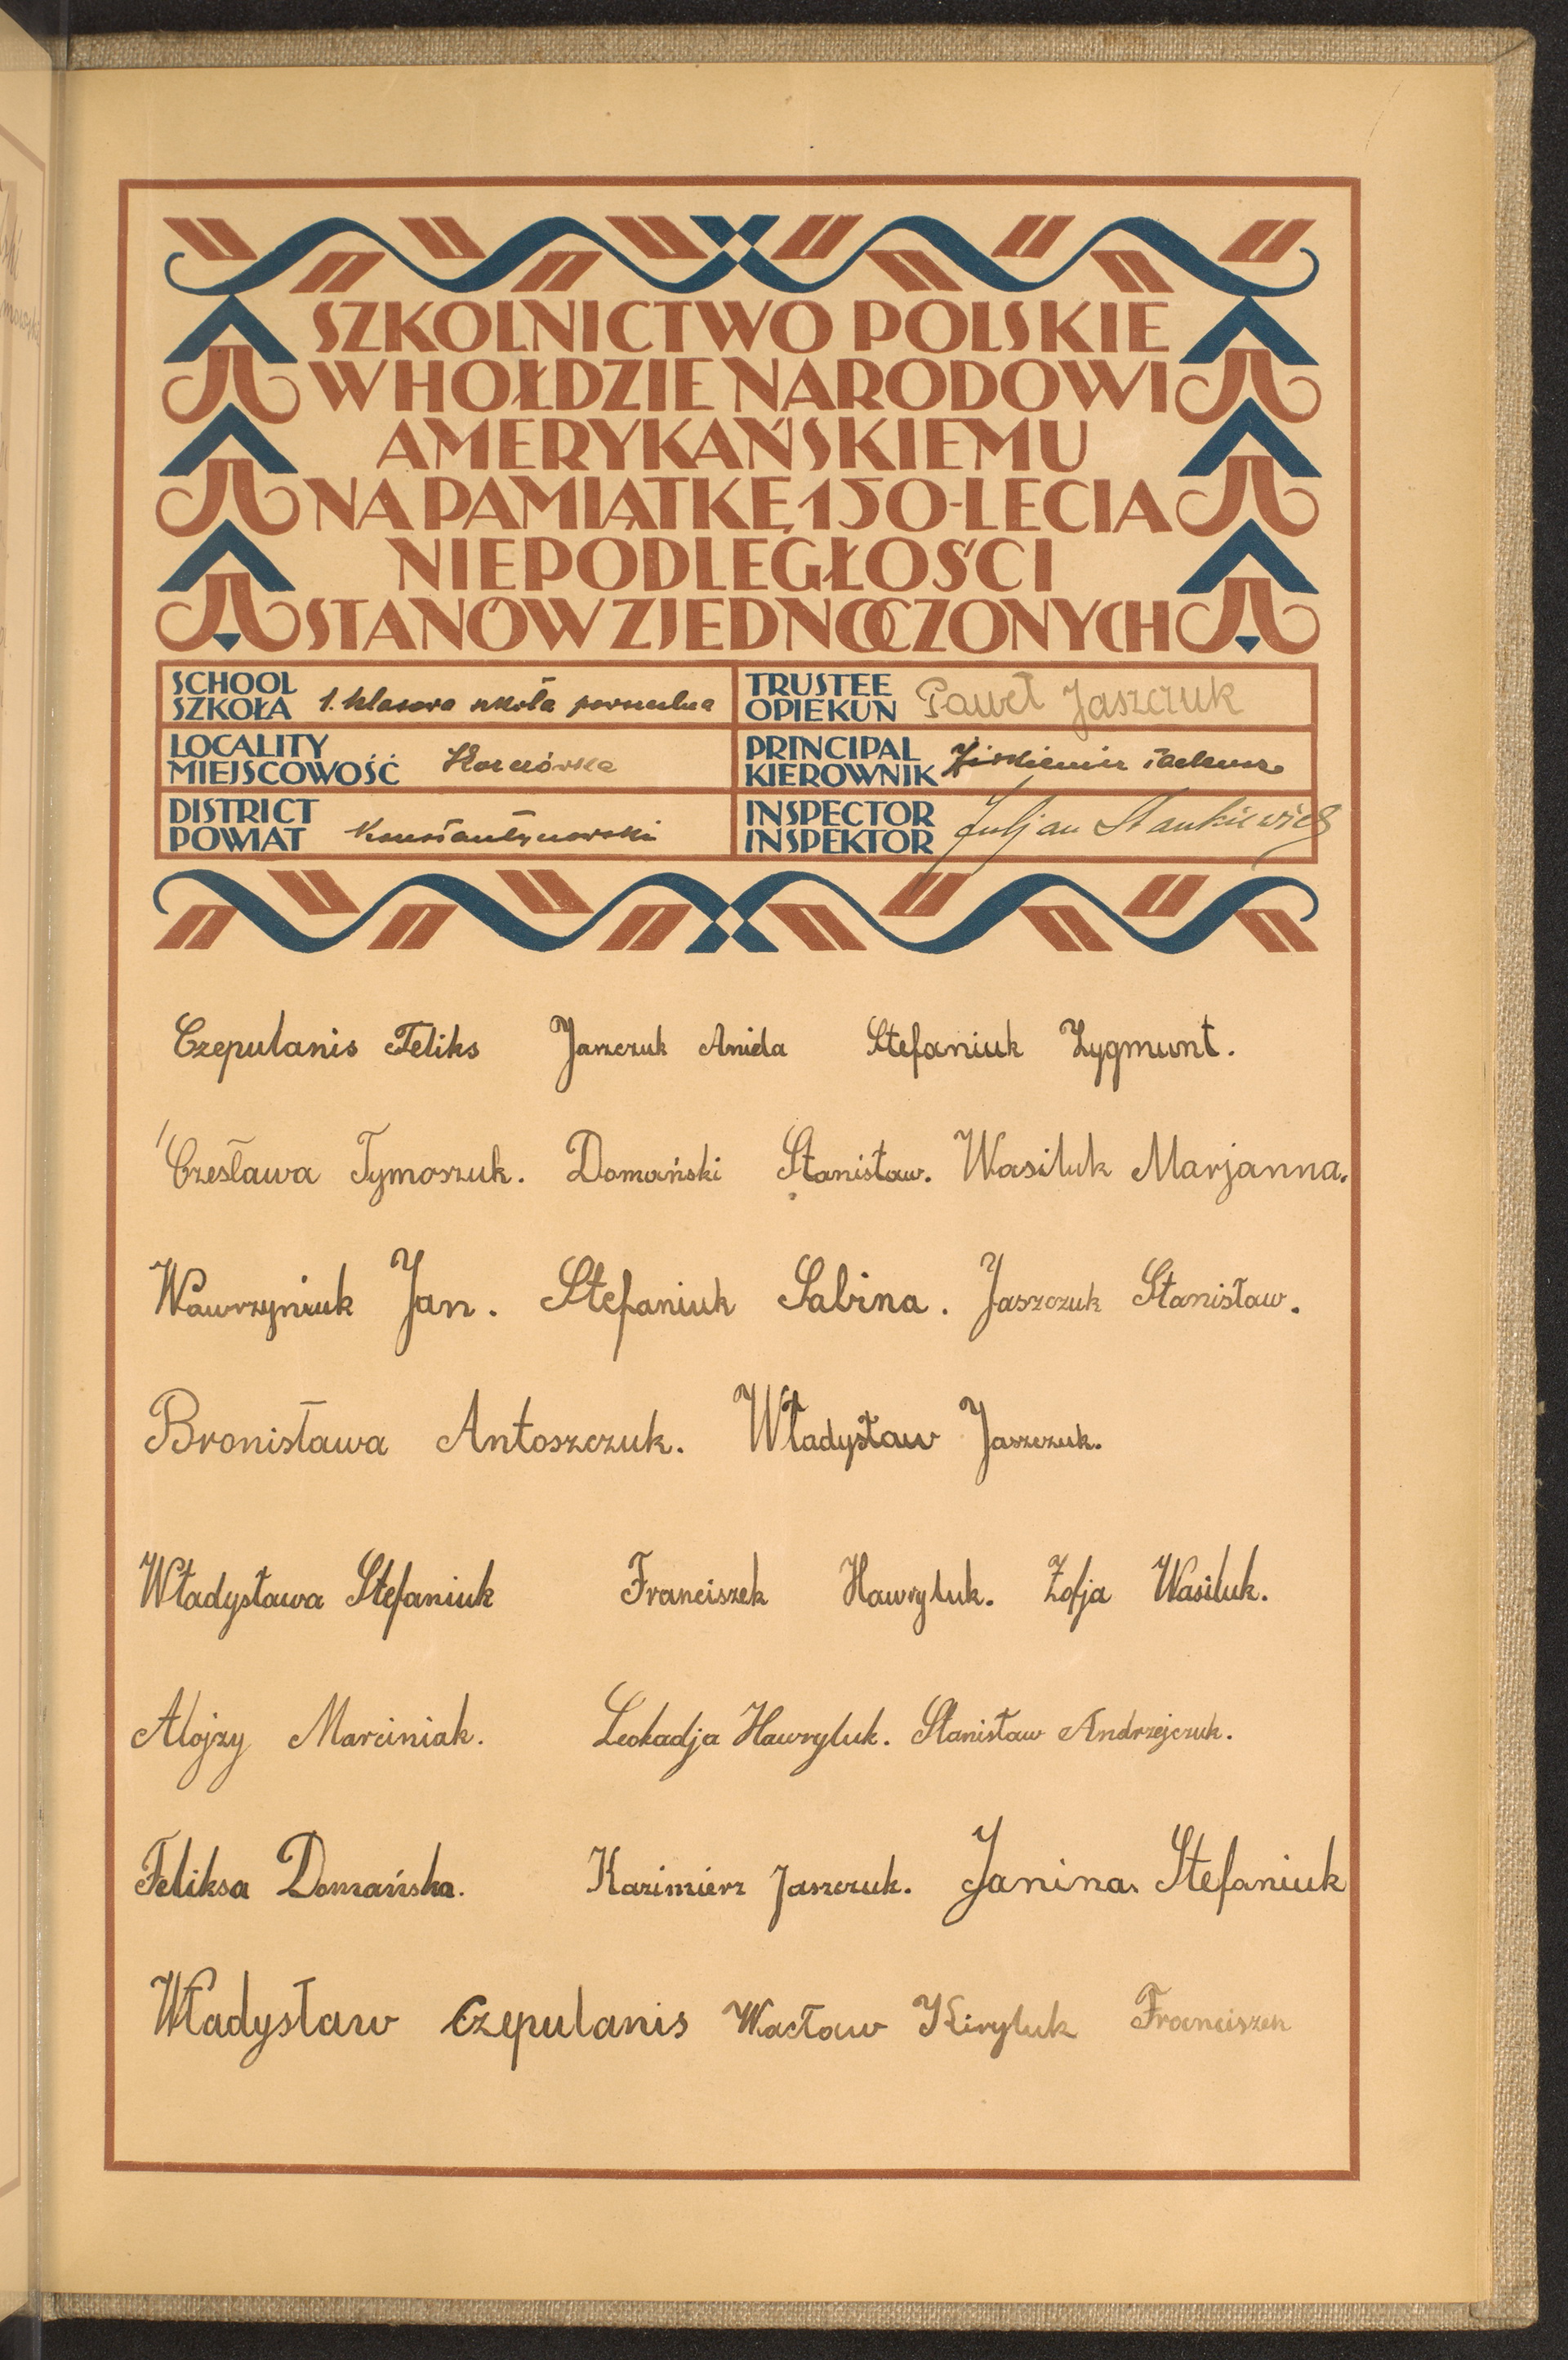 SZKOLNICTWO POLSKIE
W HOŁDZIE NARODOWI
AMERYKAŃSKIEMU
NA PAMIĄTKĘ 150-LECIA
NIEPODLEGŁOŚCI
STANÓW ZJEDNOCZONYCH
SCHOOL
SZKOŁA 1. klasowa szkoła powszechna
TRUSTEE
OPIEKUN Paweł Jaszczuk
LOCALITY
MIEJSCOWOŚĆ Korczówka
PRINCIPAL
KIEROWNIK Tadeusz
DISTRICT
POWIAT Konstantynowski
INSPECTOR
INSPEKTOR Juljan Stankiewicz
Czepulanis Feliks Jaszczuk Aniela Stefaniuk Zygmunt.
Czesława Tymoszuk. Domański Stanisław. Wasiluk Marjanna.
Wawrzyniuk Jan. Stefaniuk Sabina. Jaszczuk Stanisław.
Bronisława Antoszczuk. Władysław Jaszczuk.
Władysława Stefaniuk Franciszek Hawryluk. Zofja Wasiluk.
Alojzy Marciniak. Leokadja Hawryluk. Stanisław Andrzejczuk.
Feliksa Domańska. Kazimierz Jaszczuk. Janina Stefaniuk
Władysław Czepulanis Wacław Kiryluk Franciszek